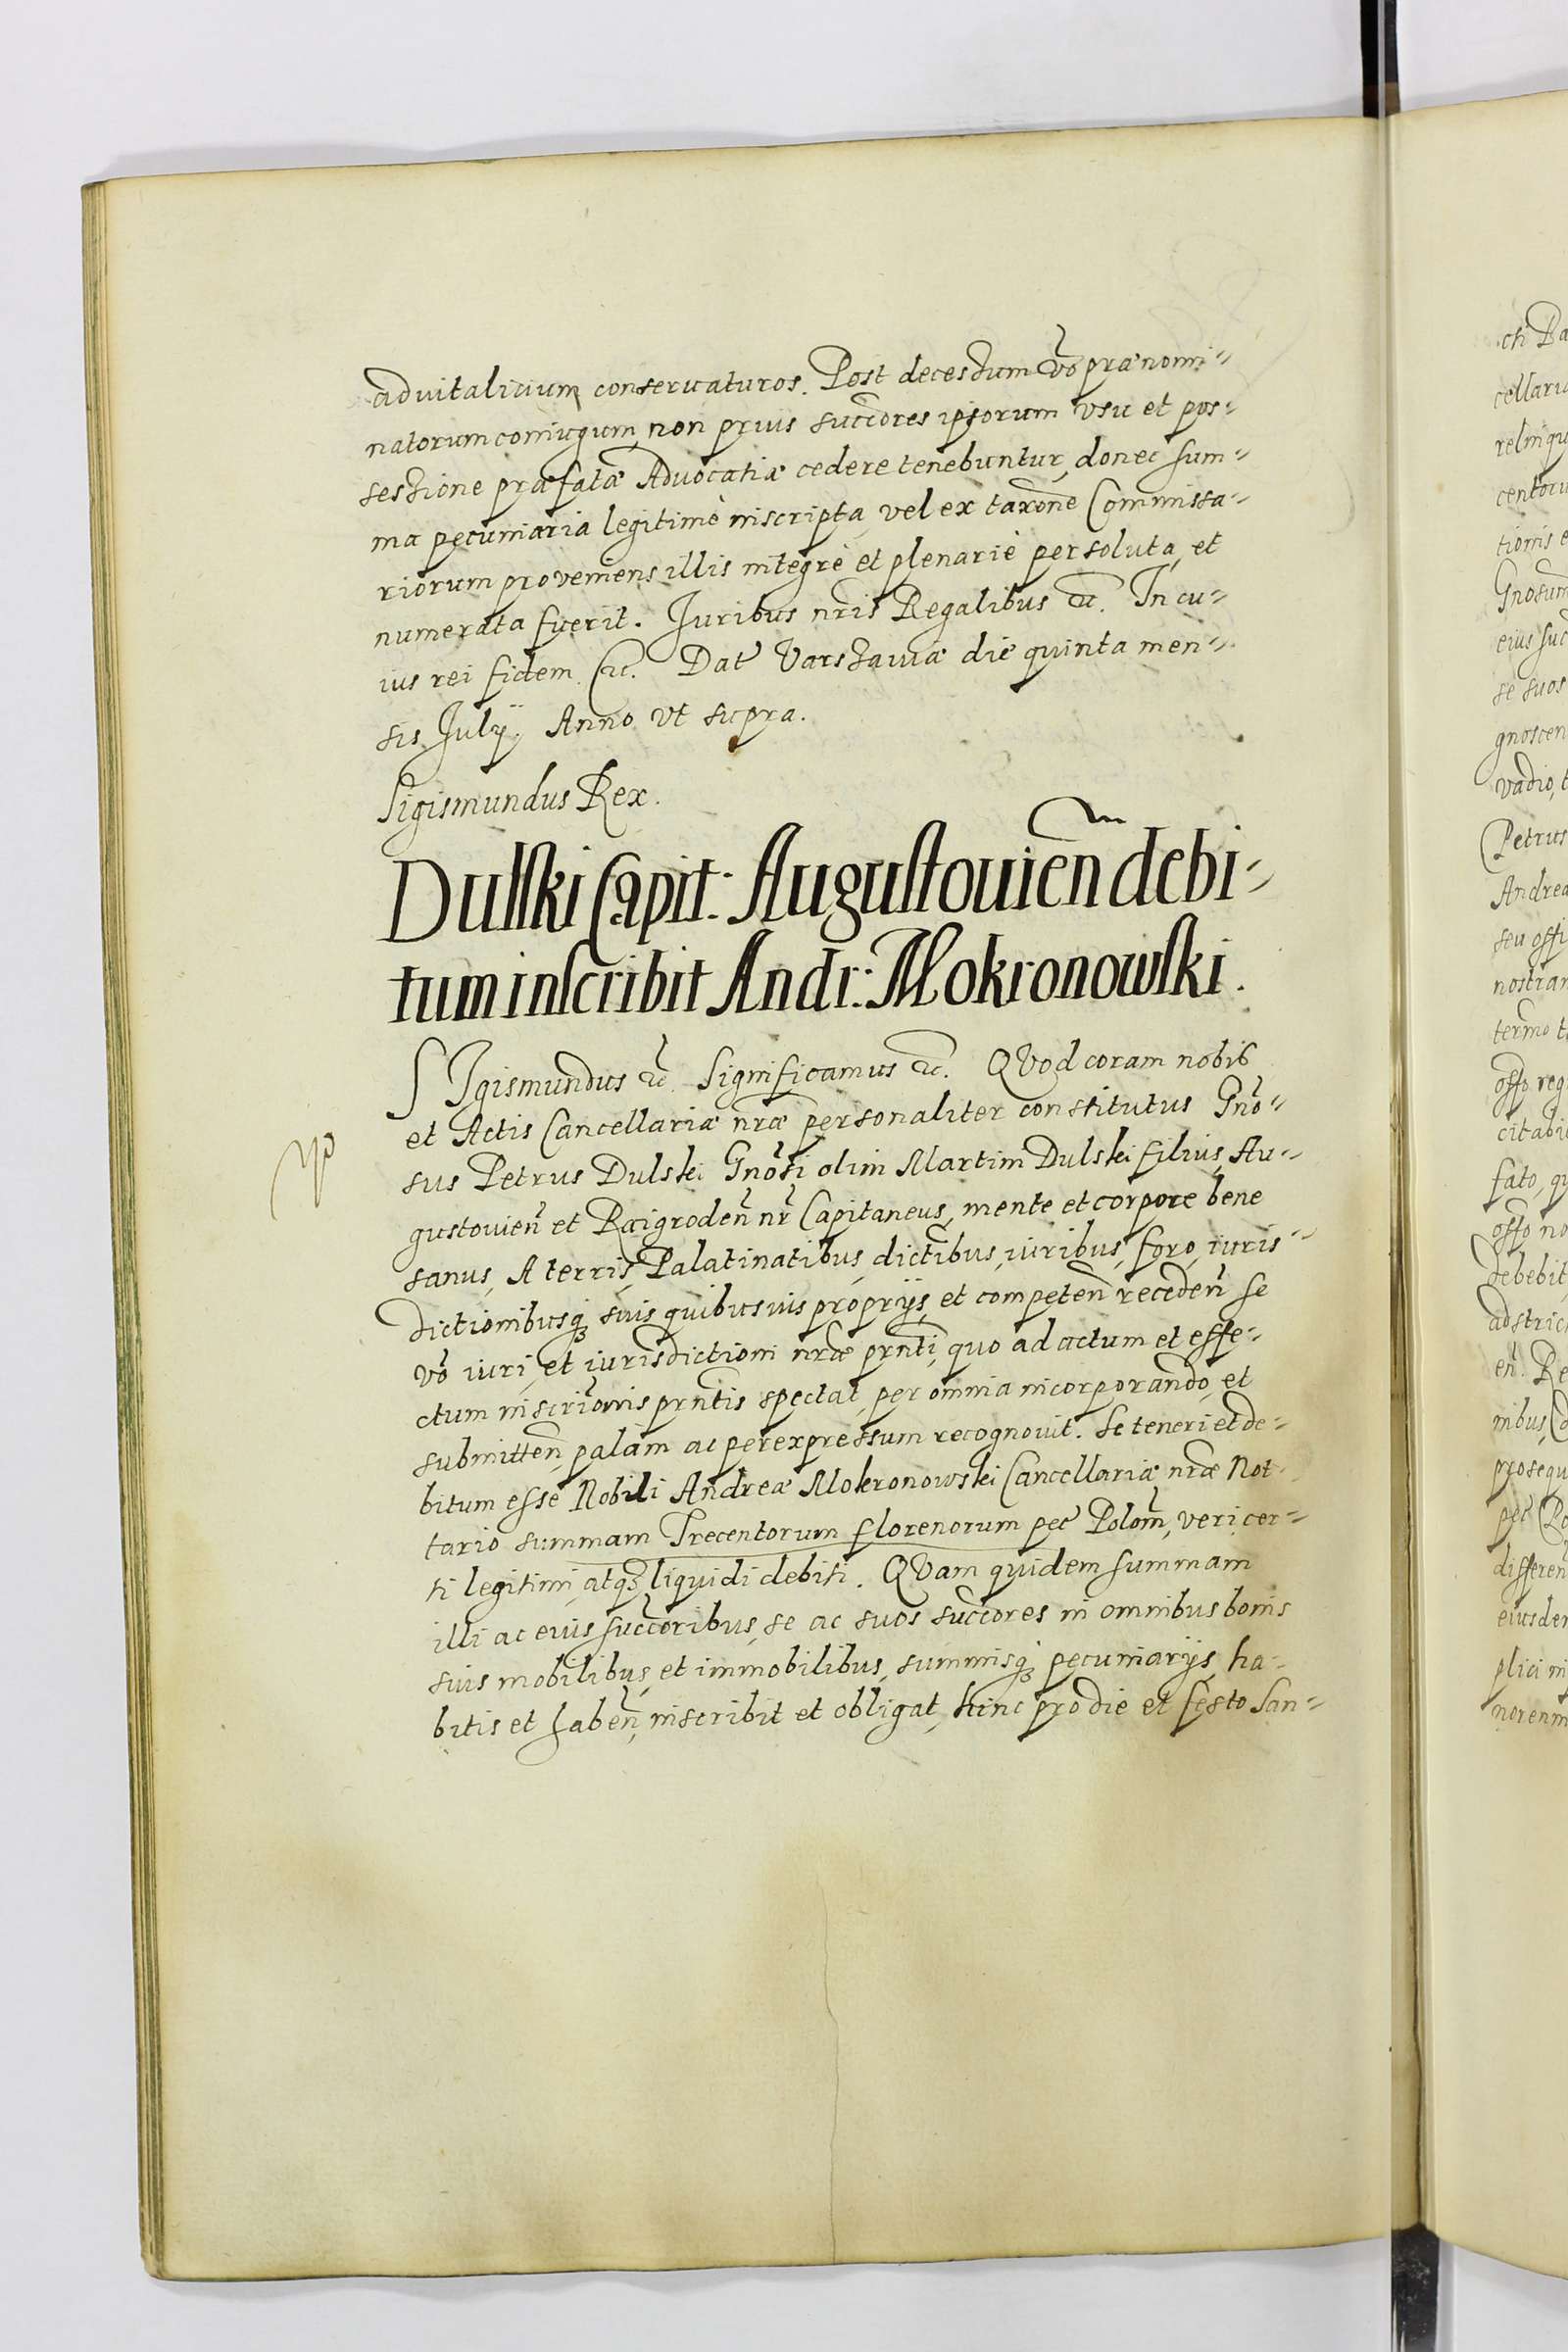 advitalitium conseruaturos. Post decessum vō prænomi-
natorum coniugum, non prius succōres ipsorum vsu et pos-
sessione præfatæ Aduocatiæ cedere tenebuntur, donec sum-
ma pecuniaria legitimè inscripta, vel ex taxōne Commissa-
riorum proveniens illis integrè et plenariè persoluta, et
numerata fuerit. Juribus nr̄is Regalibus etc. In cu-
ius rei fidem etc. Dat Varsauiæ die quinta men-
sis Julij Anno vt supra.
Sigismundus Rex.
Dulski Capit: Augustouien̄ debi-
tum inscribit Andr: Mokronowski.
SIgismundus etc. Significamus etc. QVod coram nobis
et Actis Cancellariæ nr̄æ personaliter constitutus Gnō-
sus Petrus Dulski Gnōsi olim Martini Dulski filius, Au-
gustouien̄ et Raigroden̄ nr̄ Capitaneus, mente et corpore bene
sanus, A terris, Palatinatibus, dictībus, iuribus, foro, iuris-
dictionibusq; suis quibusuis proprijs, et competen̄ receden̄ se
vō iuri, et iurisdictioni nr̄æ prn̄ti, quo ad actum et effe-
ctum inscriōnis prn̄tis spectat, per omnia incorporando, et
submitten̄ palam ac per expressum recognouit. Se teneri et de-
bitum esse Nobili Andreæ Mokronowski Cancellariæ nr̄æ Not-
tario summam Trecentorum florenorum pec Polon̄, veri cer-
ti legitimi, atq; liquidi debiti. QVam quidem summam
illi ac eius succōribus, se ac suos succōres in omnibus bonis
suis mobilibus, et immobilibus, summisq; pecuniarijs, ha-
bitis et haben̄, inscribit et obligat, hinc pro die et festo San-